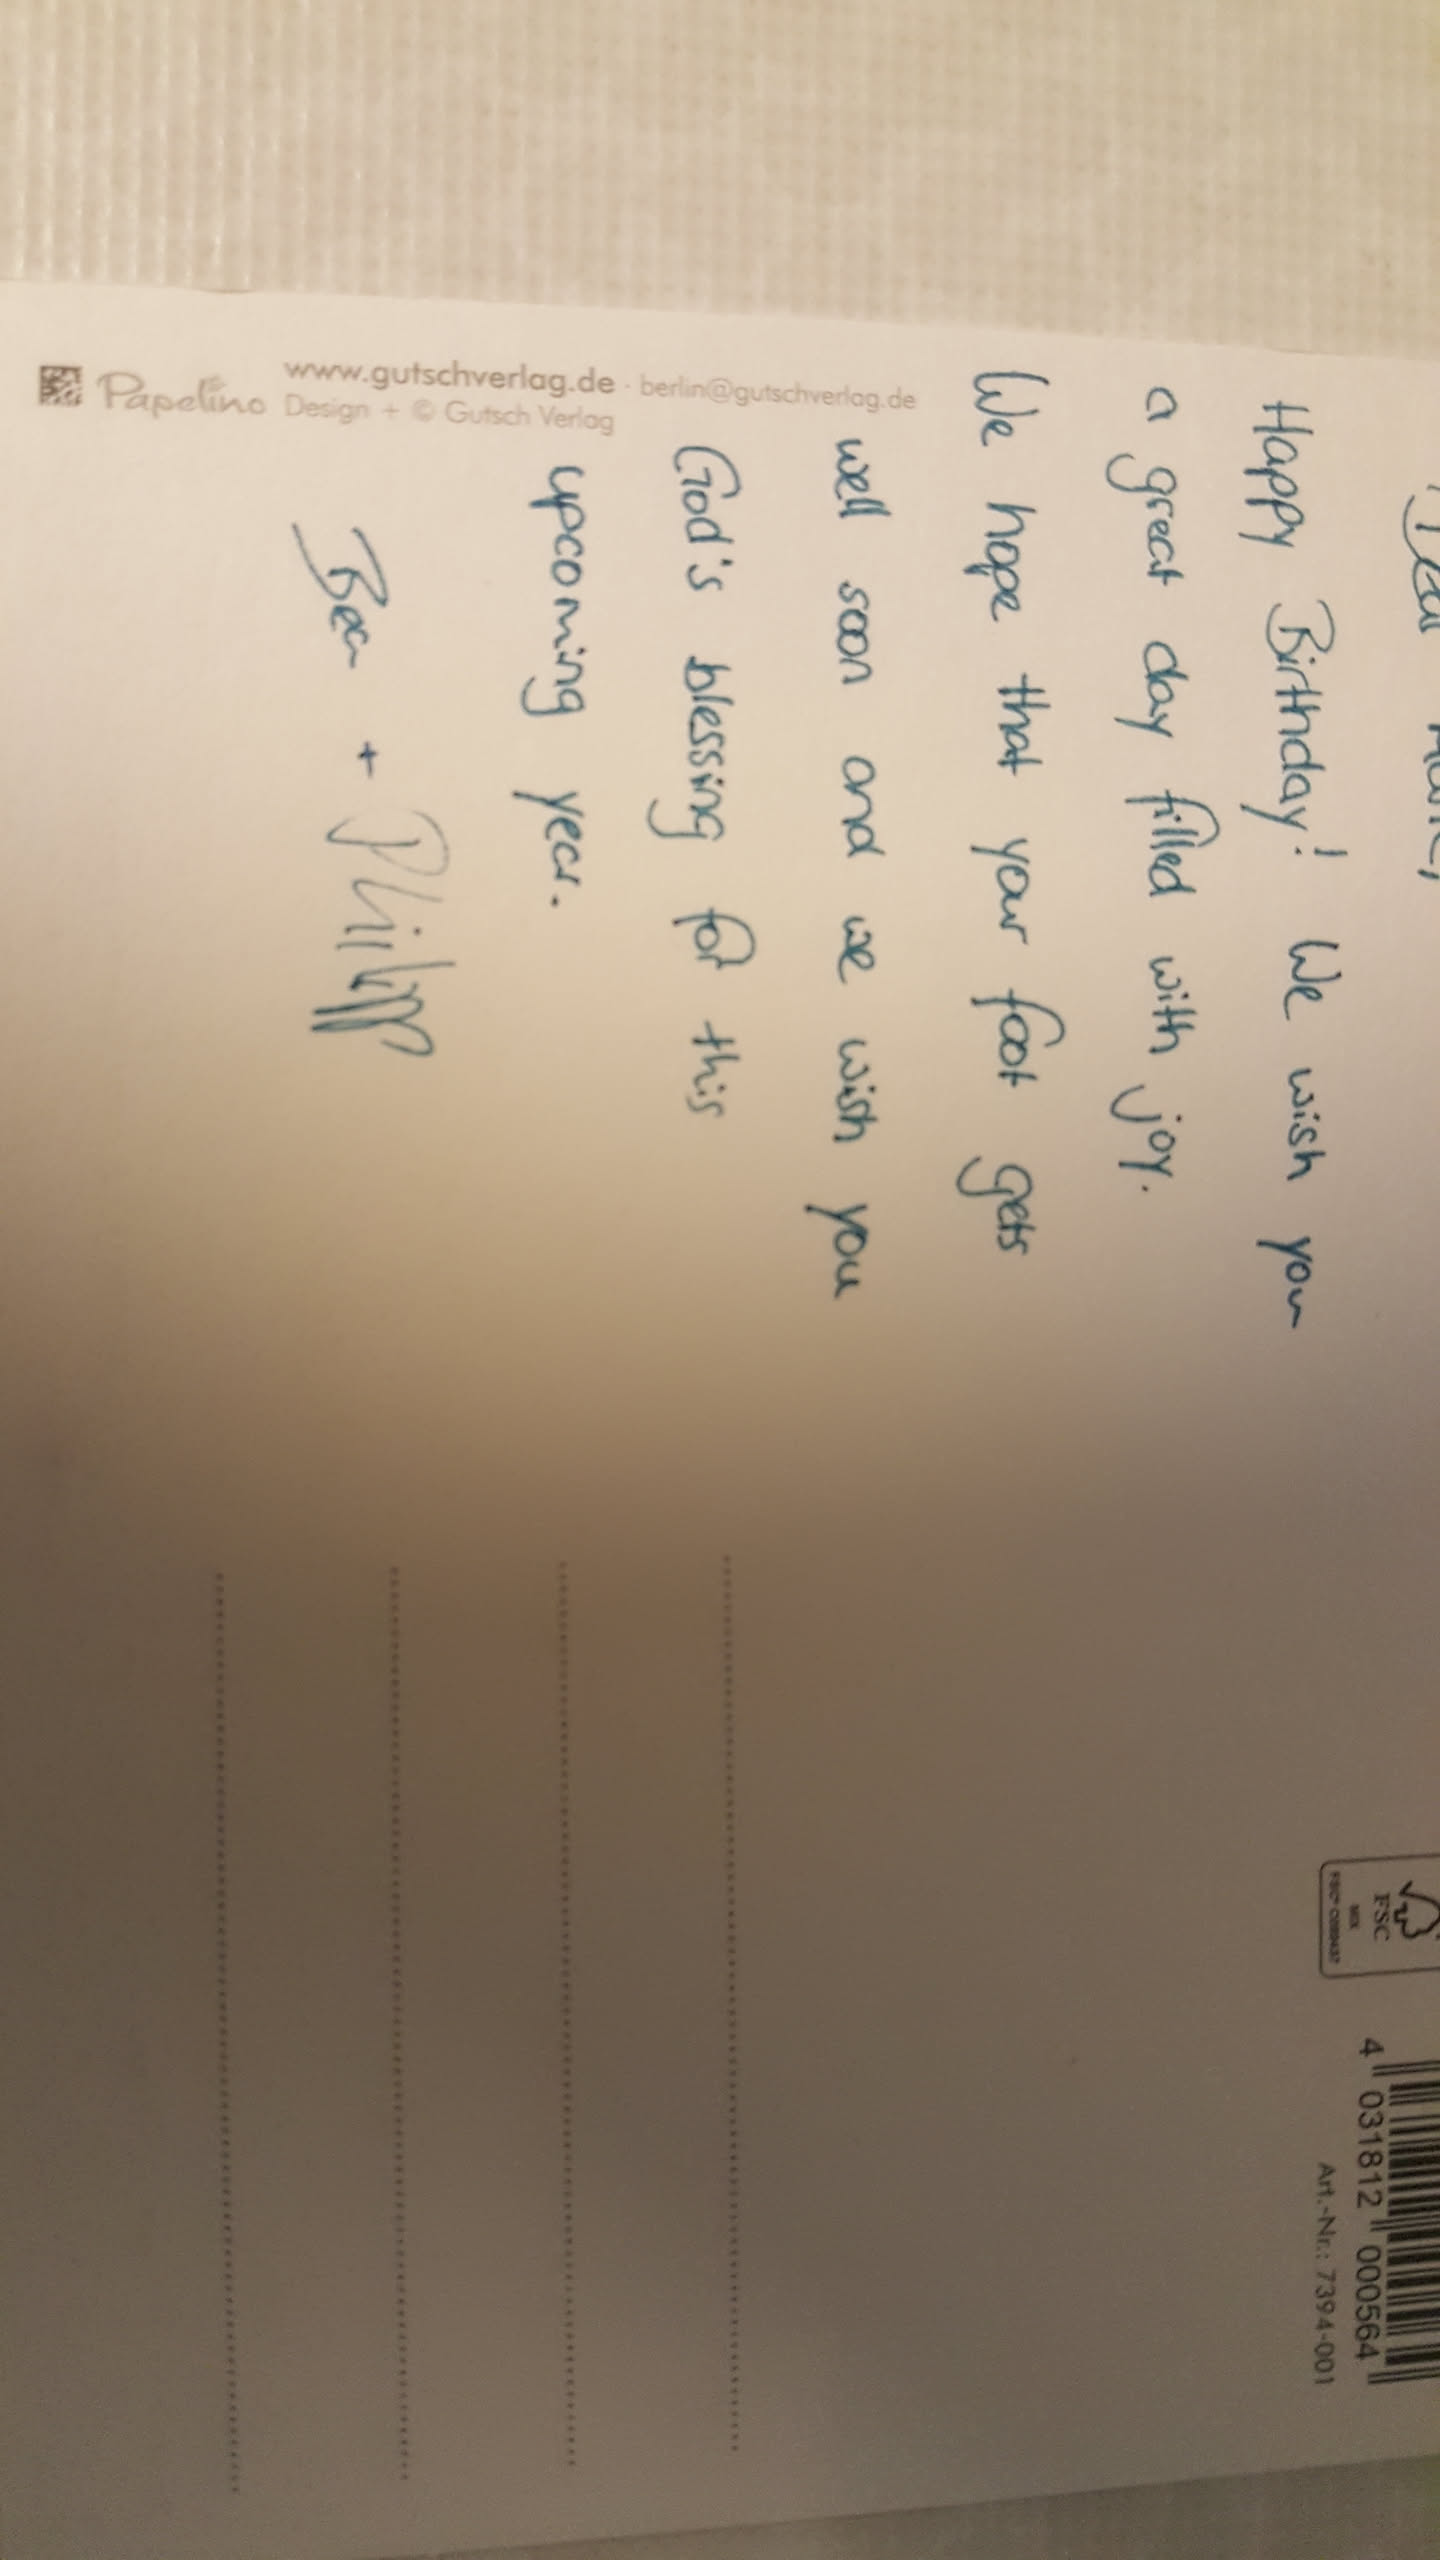 Dear
Happy Birthday! We wish you
a great day filled with joy.
We hope that your foot gets
well soon and we wish you
God's blessing for this
upcoming year.
Ben + Philipp
www.gutschverlag.de · berlin@gutschverlag.de
Papelino Design + © Gutsch Verlag
FSC
MIX
4 031812 000564
Art.-Nr.: 7394-001